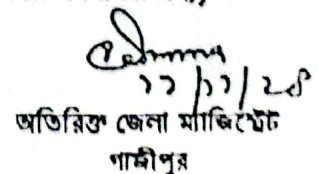 ১১/১১/২৫
অতিরিক্ত জেলা ম্যাজিস্ট্রেট
গাজীপুর